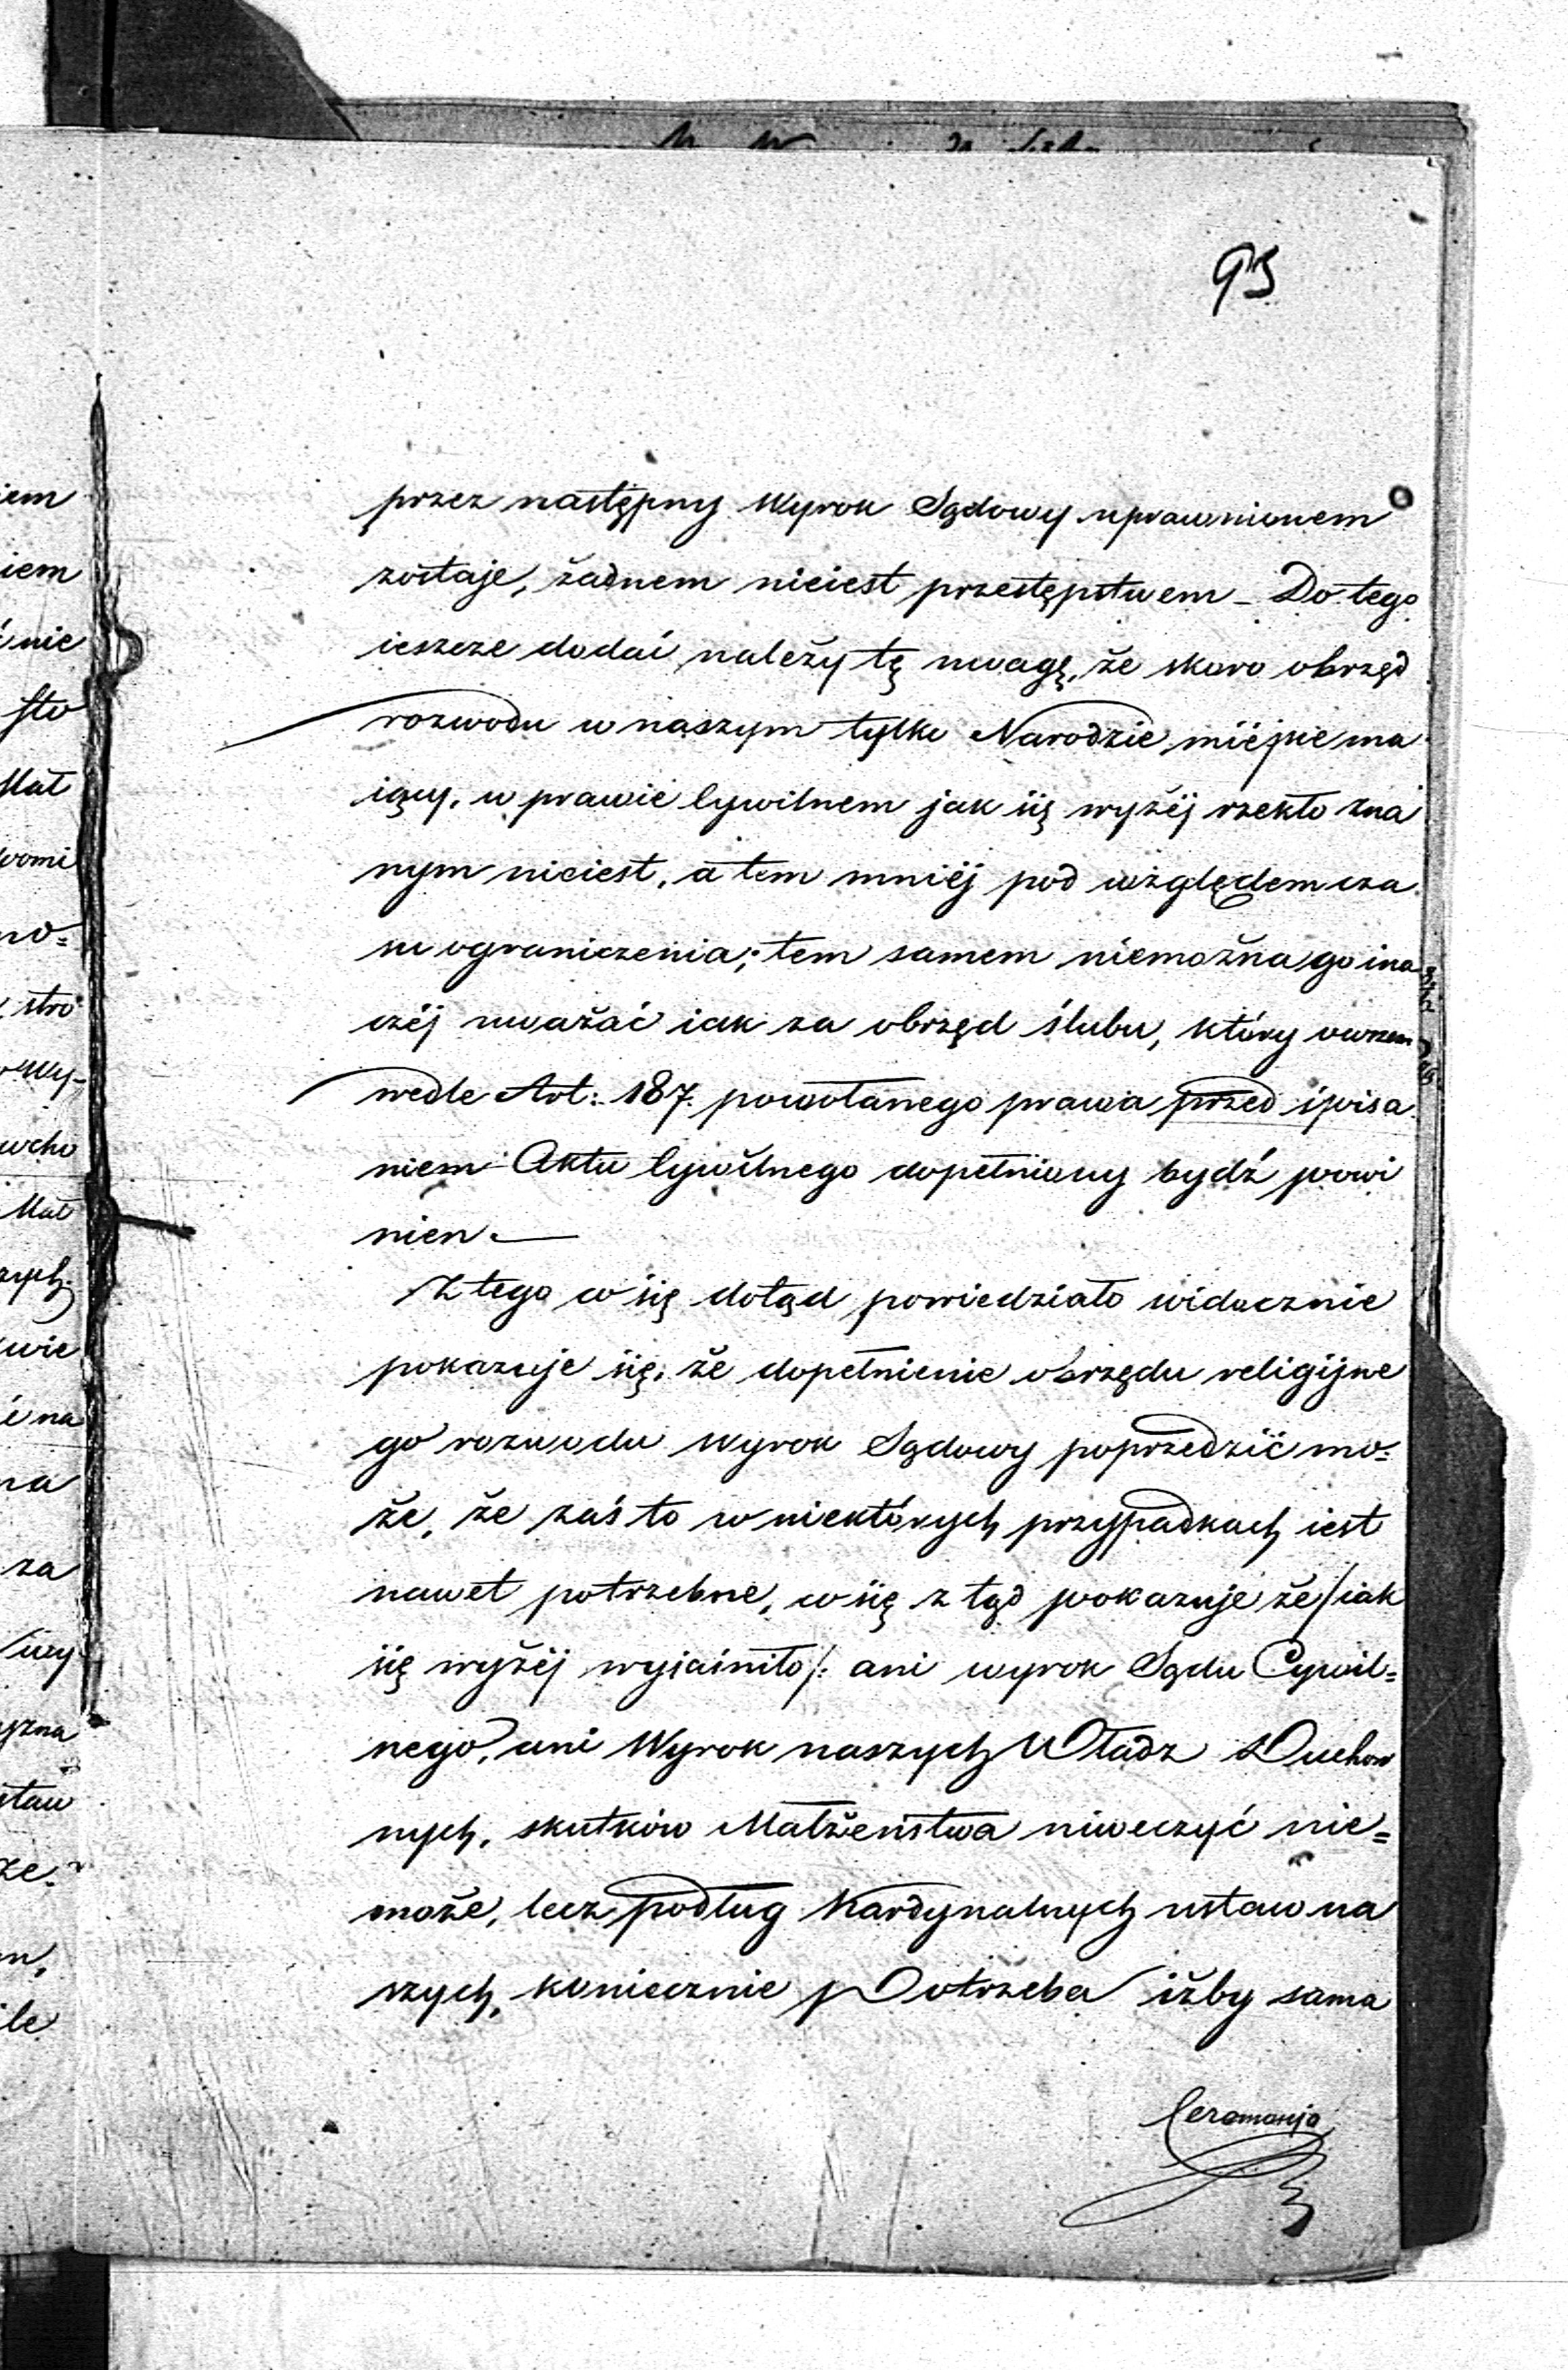 93
przez następny Wyrok Sądowy uprawnionem
zostaje, żadnem nieiest przestępstwem – Do tego
ieszcze dodać należy tę uwagę, że skoro obrzęd
rozwodu w naszym tylko Narodzie miéjsce ma
iący, w prawie Cywilnem jak się wyżéj rzekło zna
nym nieiest, a tem mniéj pod względem cza
su ograniczenia; tem samem niemożna go ina
czéj uważać iak za obrzęd ślubu, który owszem
wedle Art: 187. powołanego prawa przed spisa
niem Aktu Cywilnego dopełniony bydź powi
nien. —
Z tego co się dotąd powiedziało widocznie
pokazuje się, że dopełnienie obrzędu religijne
go rozwodu wyrok Sądowy poprzedzić mo=
że, że zaś to w niektórych przypadkach iest
nawet potrzebne, co się z tąd pokazuje że /iak
się wyżéj wyjaśniło/: ani wyrok Sądu Cywil=
nego, ani Wyrok naszych Władz Duchow
nych, skutków Małżeństwa niweczyć nie=
może, lecz podług Kardynalnych ustaw na
szych, koniecznie Potrzeba iżby sama
Ceremonja